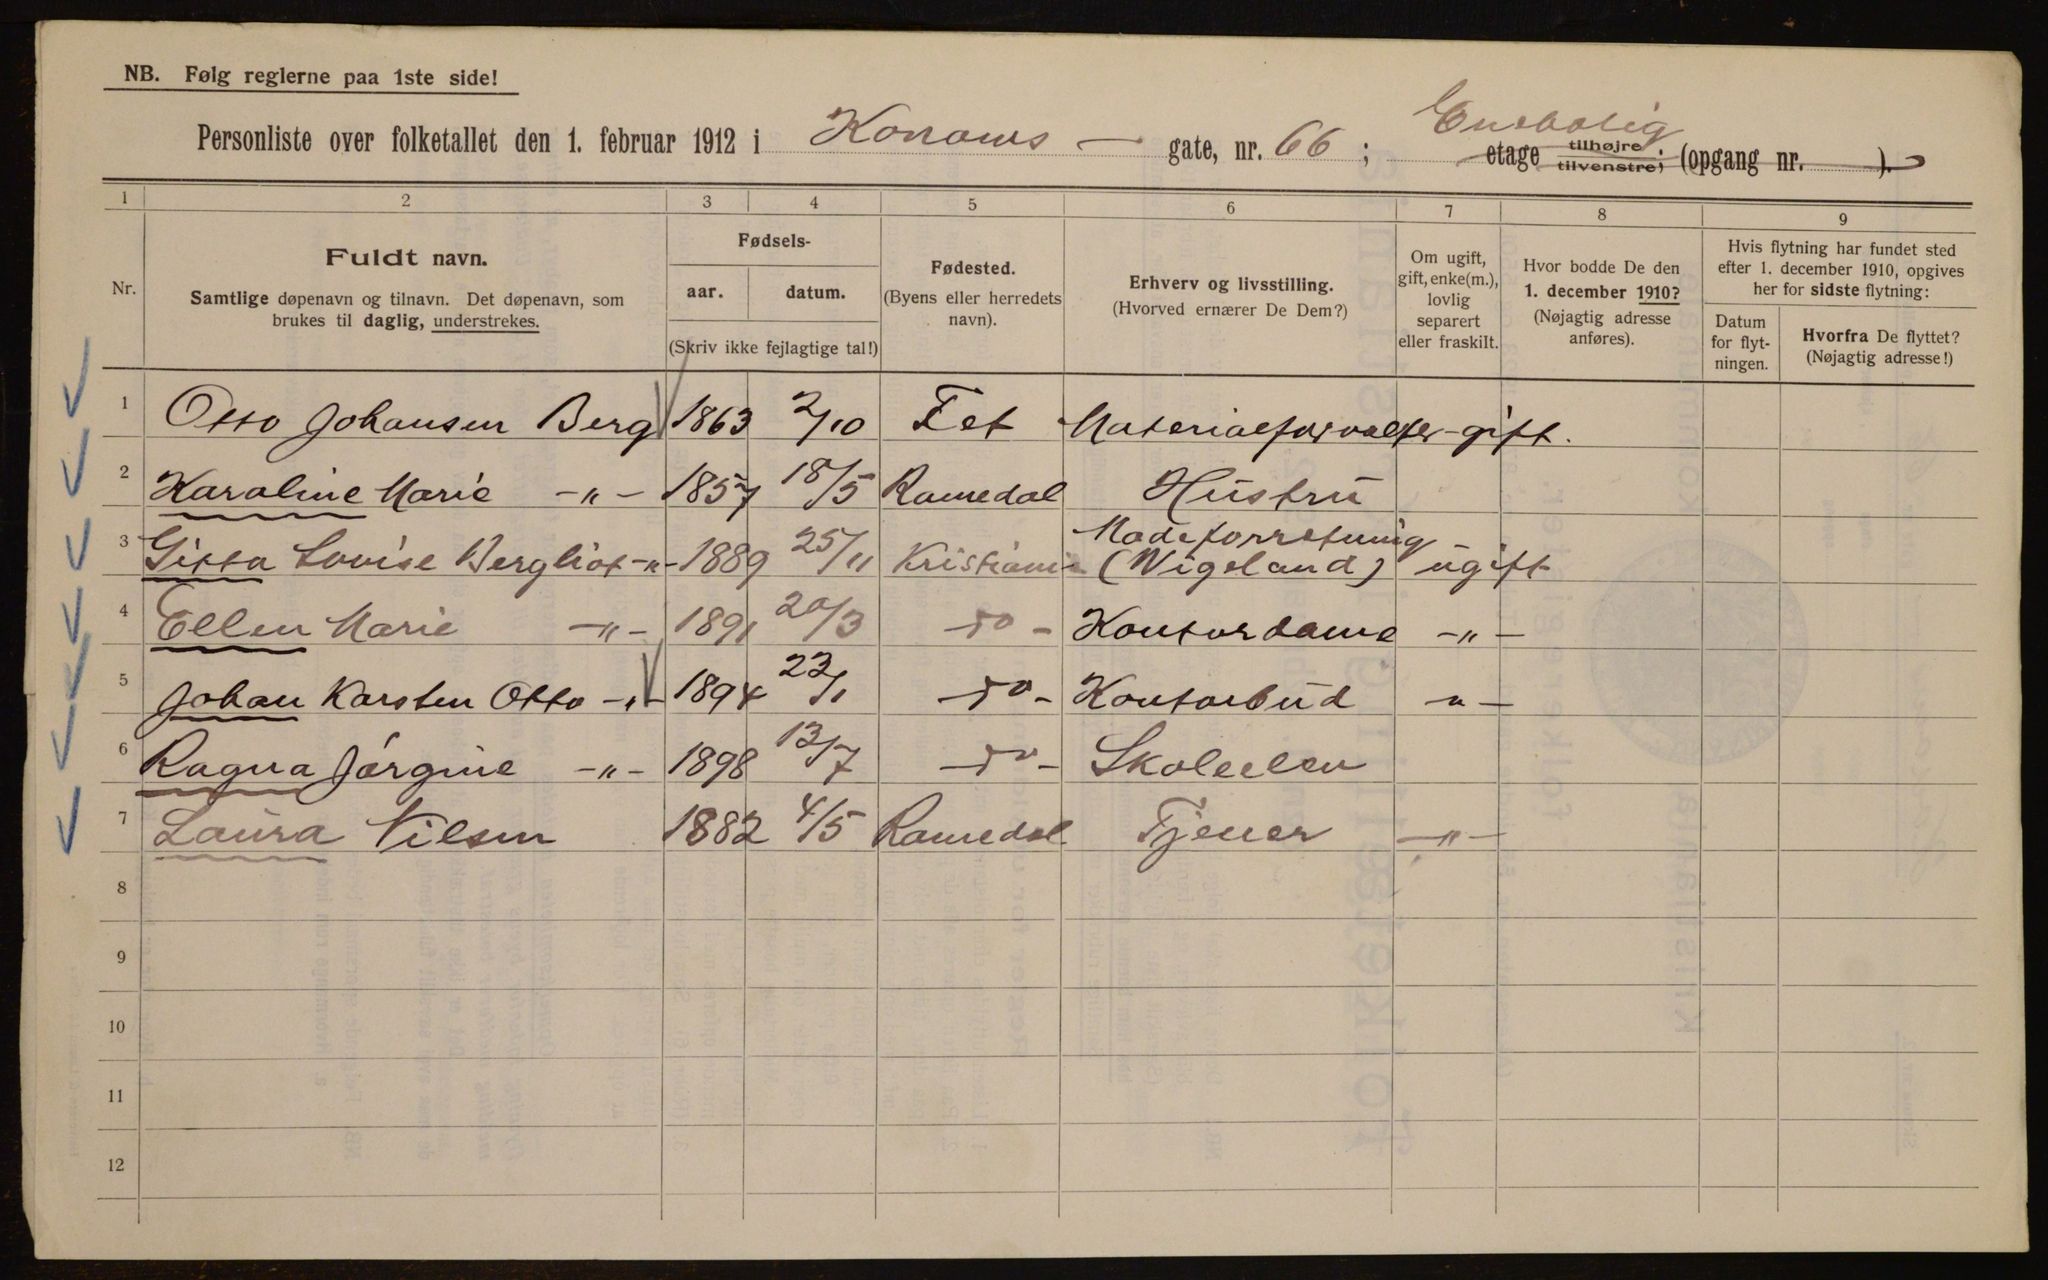 NB. Følg reglerne paa 1ste side!
Enebolig
Personliste over folketallet den 1. februar 1912 i Konows — gate, nr. 66 ; etage tilhøjre, tilvenstre, (opgang nr. ).
1 2 3 4 5 6 7 8 9
Nr.
Fuldt navn.
Samtlige døpenavn og tilnavn. Det døpenavn, som
brukes til daglig, understrekes.
Fødsels-
aar. datum.
(Skriv ikke fejlagtige tal!)
Fødested.
(Byens eller herredets
navn).
Erhverv og livsstilling.
(Hvorved ernærer De Dem?)
Om ugift,
gift, enke(m.),
lovlig
separert
eller fraskilt.
Hvor bodde De den
1. december 1910?
(Nøjagtig adresse
anføres).
Hvis flytning har fundet sted
efter 1. december 1910, opgives
her for sidste flytning:
Datum
for flyt-
ningen.
Hvorfra De flyttet?
(Nøjagtig adresse!)
1 Otto Johansen Berg 1863 2/10 Fet Materialforvalter gift.
2 Karoline Marie -"- 1857 18/5 Romedal Hustru
3 Gitta Lovise Bergliot -"- 1889 25/11 Kristiania Modeforretning (Vigeland) ugift
4 Ellen Marie -"- 1891 20/3 do - Kontordame -"-
5 Johan Karsten Otto -"- 1894 23/1 do - Kontorbud -"-
6 Ragna Jørgine -"- 1898 13/7 do - Skoleelev
7 Laura Nilsen 1882 4/5 Romedal Tjener -"-
8
9
10
11
12